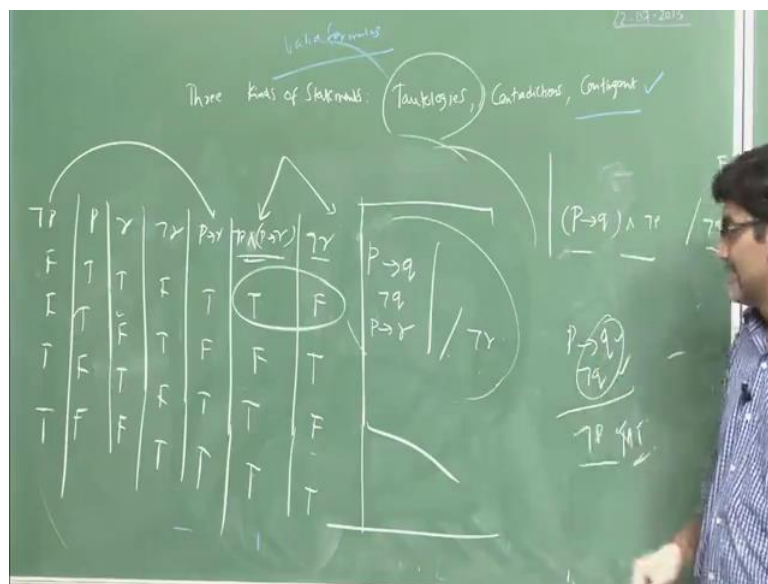 12-07-2015
Valid formulas
Three kinds of Statements: Tautologies, Contradictions, Contingent ✓
¬P | P | r | ¬r | P→r | ¬P∧(P→r) | ¬r
F | T | T | F | T | T | F
F | T | F | T | F | F | T
T | F | T | F | T | T | F
T | F | F | T | T | T | T
P→q
¬q
P→r / ¬r
(P→q) ∧ ¬P / ¬q
P→q
¬q
¬P